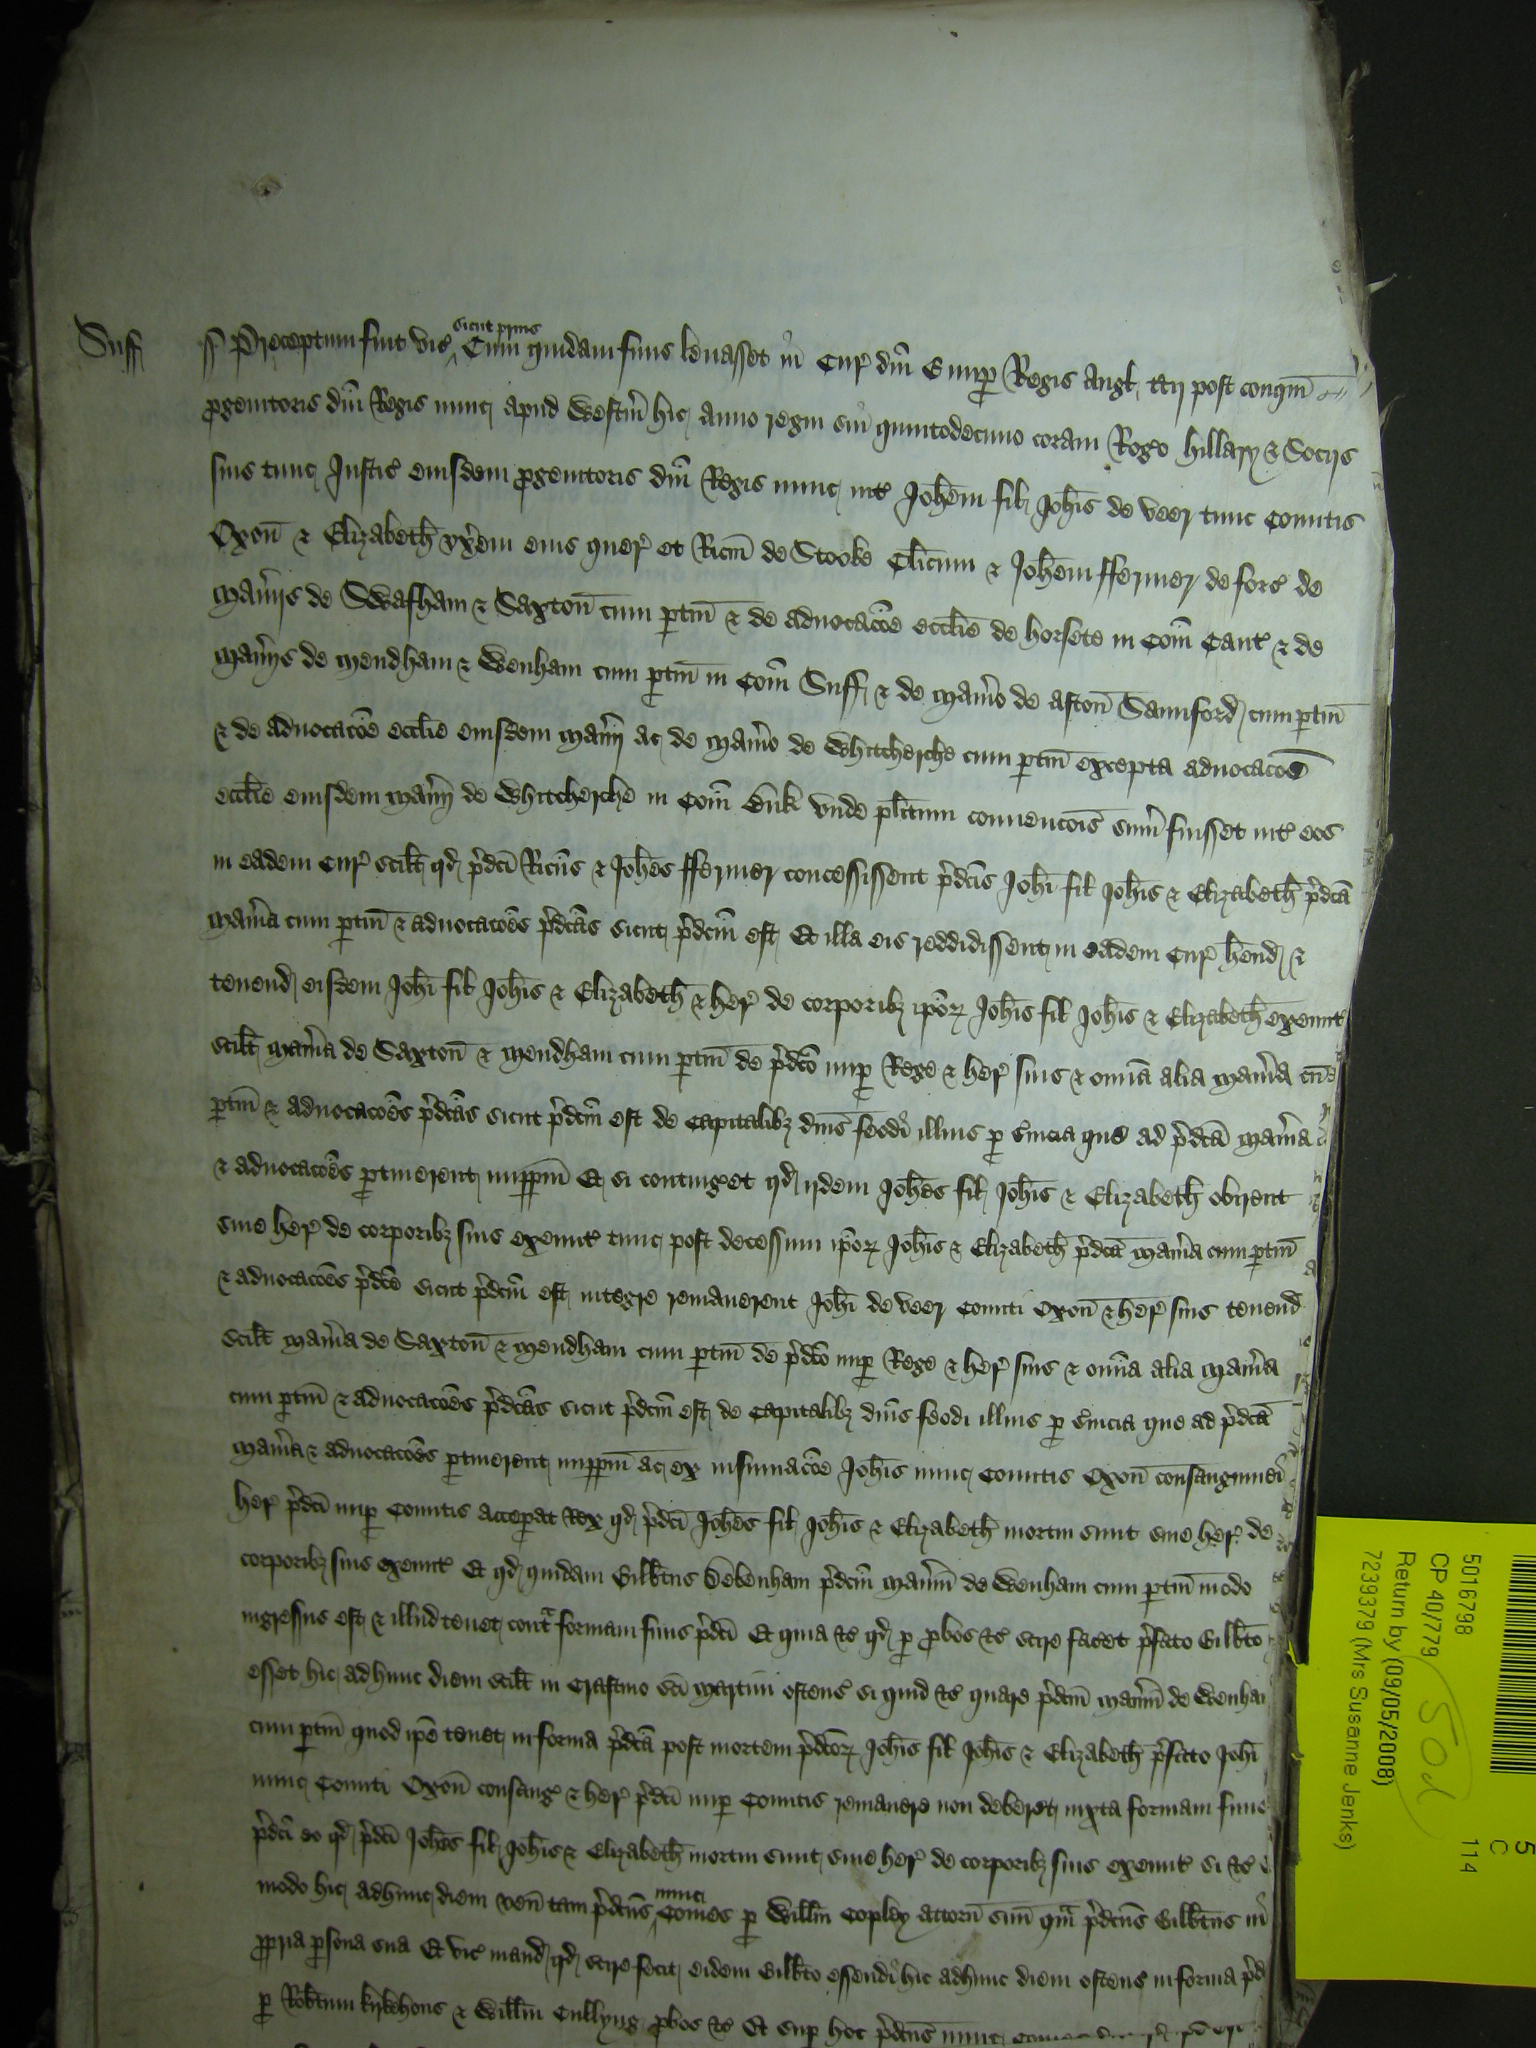 Suff
ss Preceptum fuit vic̄ sicut prius Cum quidam finis levasset in Cur̄ dn̄i E nup̱ Regis Angl̄ tcij post conqm̄
p̱genitoris dn̄i Regis nunc apud Westm̄ hic anno regni sui quintodecimo coram Rog̃o Hillary & Socijs
suis tunc Justic̄ eiusdem p̱genitoris dn̄i Regis nunc int̃ Joh̄em fil̄ Joh̄is de Veer tunc Comitis
Oxon̄ & Elizabeth̄ ux̃em eius quer̄ et Ric̄m de Stooke Cl̄icum & Joh̄em ffermer deforc̄ de
Man̄ijs de Swafham & Saxton̄ cum p̱tin̄ & de advocac̄oe eccl̄ie de Horsete in Com̄ Cant̃ & de
Man̄ijs de Mendham & Wenham cum p̱tin̄ in Com̄ Suff & de Man̄io de Aston̄ Samford cum p̱tin̄
& de advocac̄oe eccl̄ie eiusdem Man̄ij ac de Man̄io de Whitcherche cum p̱tin̄ excepta advocac̄oe
eccl̄ie eiusdem Man̄ij de Whitcherche in Com̄ Buk̄ unde pl̄itum convenc̄ois sum̄ fuisset int̃ eos
in eadem Cur̄ scil̄t qd̄ p̃dc̄i Ric̄us & Joh̄es ffermer concessissent p̃dc̄is Joh̄i fil̄ Joh̄is & Elizabeth̄ p̃dc̄a
Man̄ia cum p̱tin̄ & advocac̄oes p̃dc̄as sicut p̃dc̄m est Et illa eis reddidissent in eadem Cur̄ h̄end &
tenend eisdem Joh̄i fil̄ Joh̄is & Elizabeth̄ & her̄ de corporibȝ ip̄oꝝ Joh̄is fil̄ Joh̄is & Elizabeth̄ exeunt̃
scil̄t Man̄ia de Saxton̄ & Mendham cum p̱tin̄ de p̃dc̄o nup̱ Rege & her̄ suis & om̄ia alia Man̄ia cum
p̱tin̄ & advocac̄oes p̃dc̄as sicut p̃dc̄m est de Capitalibȝ dn̄is feodi illius p̱ s̃vicia que ad p̃dc̄a Man̄ia
& advocac̄oes p̱tinerent imp̱p̱m̄ Et si conting̃et qd̄ ijdem Joh̄es fil̄ Joh̄is & Elizabeth̄ obirent
sine her̄ de corporibȝ suis exeunt̃ tunc post decessum ip̄oꝝ Joh̄is & Elizabeth̄ p̃dc̄a Man̄ia cum p̱tin̄
& advocac̄oes p̃dc̄e sicut p̃dc̄m est integre remanerent Joh̄i de Veer Comiti Oxon̄ & her̄ suis tenend
scil̄t Man̄ia de Saxton̄ & Mendham cum p̱tin̄ de p̃dc̄o nup̱ Rege & her̄ suis & om̄ia alia Man̄ia
cum p̱tin̄ & advocac̄oes p̃dc̄as sicut p̃dc̄m est de Capitalibȝ dn̄is feodi illius p̱ s̃vicia que ad p̃dc̄a
Man̄ia & advocac̄oes p̱tinerent imp̱p̱m̄ ac ex insinuac̄oe Joh̄is nunc Comitis Oxon̄ consanguinei
her̄ p̃dc̄i nup̱ Comitis accep̱at Rex qd̄ p̃dc̄i Joh̄es fil̄ Joh̄is & Elizabeth̄ mortui sunt sine her̄ de
corporibȝ suis exeunt̃ Et qd̄ quidam Gilb̄tus Debenham p̃dc̄m Man̄ium de Wenham cum p̱tin̄ modo
ingressus est & illud tenet cont̃ formam finis p̃dc̄i Et quia &c qd̄ p̱ p̱bos &c scire facet p̃fato Gilb̄to
esset hic ad hunc diem scil̄t in Crastino sc̄i Martini ostens̄ si quid &c quare p̃dc̄m Man̄ium de Wenha
cum p̱tin̄ quod ip̄e tenet in forma p̃dc̄a post mortem p̃dc̄oꝝ Joh̄is fil̄ Joh̄is & Elizabeth̄ p̃fato Joh̄i
nunc Comiti Oxon̄ consang̃ & her̄ p̃dc̄i nup̱ Comitis remanere non deberet iuxta formam finis
p̃dc̄i eo qd̄ p̃dc̄i Joh̄es fil̄ Joh̄is & Elizabeth̄ mortui sunt sine her̄ de corporibȝ suis exeunt̃ si &c
modo hic ad hunc diem ven̄ tam p̃dc̄us nunc Comes p̱ Will̄m Copley attorn̄ suū qm̃ p̃dc̄us Gilb̄tus in
p̱p̱ria p̱sona sua Et vic̄ mand qd̄ scire fecit eidem Gilb̄to essendi hic ad hunc diem ostens̄ in forma p̃d
p̱ Rob̄tum Kyrkehous & Will̄m Cullyng p̱bos &c Et sup̱ hoc p̃dc̄us nunc
5016798
CP 40/779
Return by (09/05/2008)
7239379 (Mrs Susanne Jenks)
50d
5
C
114